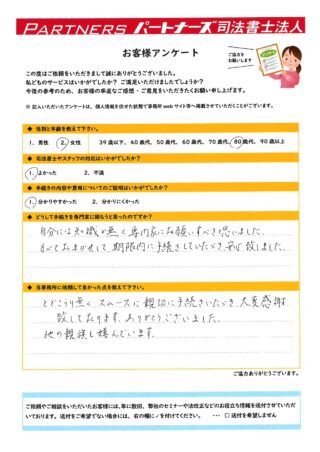 PARTNERS パートナーズ司法書士法人
お客様アンケート
ご協力を
お願いします
この度はご依頼をいただきまして誠にありがとうございました。
私どものサービスはいかがでしたか? ご満足いただけましたでしょうか?
今後の参考のため、お客様の率直なご感想・ご意見をいただきたくお願い申し上げます。
※ 記入いただいたアンケートは、個人情報を伏せた状態で当事務所 web サイト等へ掲載させていただくことがございます。
◆ 性別と年齢を教えて下さい。
1. 男性 2. 女性 39 歳以下、40 歳代、50 歳代、60 歳代、70 歳代、80 歳代、90 歳以上
◆ 司法書士やスタッフの対応はいかがでしたか?
1. よかった 2. 不満
◆ 手続きの内容や費用についてのご説明はいかがでしたか?
1. 分かりやすかった 2. 分かりにくかった
◆ どうして手続きを専門家に頼もうと思ったのですか?
自分には知識が無く専門家にお願いすべきと思いました。
すべておまかせして、期限内に手続きしていただき 安心 致しました。
◆ 当事務所に依頼して良かった点を教えて下さい。
とどこうり無く、スムースに親切に手続きいただき、大変感謝
致しております。ありがとうございました。
他の親族も喜んでいます。
ご協力ありがとうございます。
ご依頼やご相談をいただいたお客様には、年に数回、弊社のセミナーや法改正などのお役立ち情報を送付させていただ
いております。送付をご希望でない場合には、右の欄に✓を付けてください。 ・・・ □ 送付を希望しません